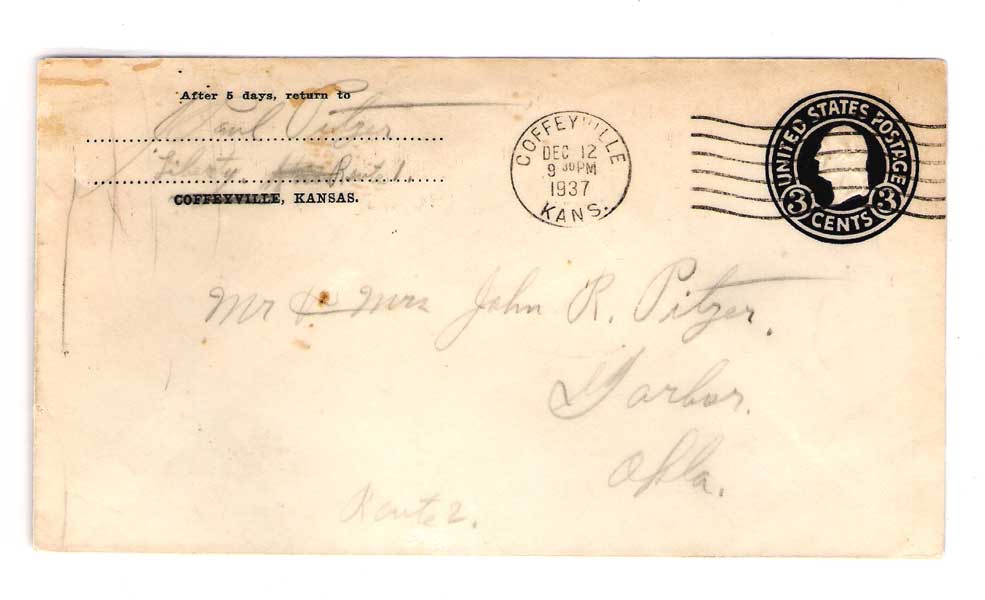 After 5 days, return to
Paul Pitzer
Liberty. Route 1.
COFFEYVILLE, KANSAS.
COFFEYVILLE
DEC 12
9 30 PM
1937
KANS.
UNITED STATES POSTAGE
3 CENTS 3
Mr & Mrs John R. Pitzer.
Garber.
Okla.
Route 2.